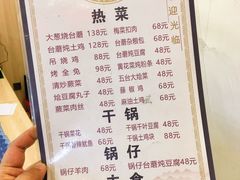 热菜
大葱烧台蘑 138元 梅菜扣肉 68元
台蘑炖土鸡 128元 台蘑杂粮包 68元
吊烧鸡 88元 台蘑炖豆腐 48元
烤全兔 88元 黄花菜炖粉条
清炒蕨菜 48元 五台大烩菜
烩豆腐丸子 48元 藤椒鸡
蕨菜肉丝 48元 麻油土鸡
干锅
干锅菜花 48元 干锅千叶豆腐 48元
鱿鱼 68元 干锅土鸡块 88元
锅仔
锅仔羊肉 68元 锅仔台蘑炖豆腐 48元
主食
迎光临